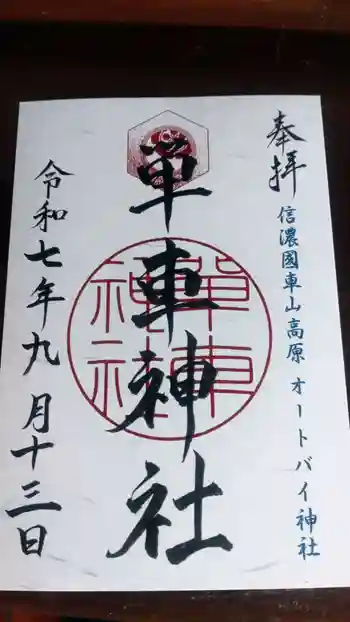 奉拝
信濃國車山高原 オートバイ神社
單車神社
單車神社
令和七年九月十三日